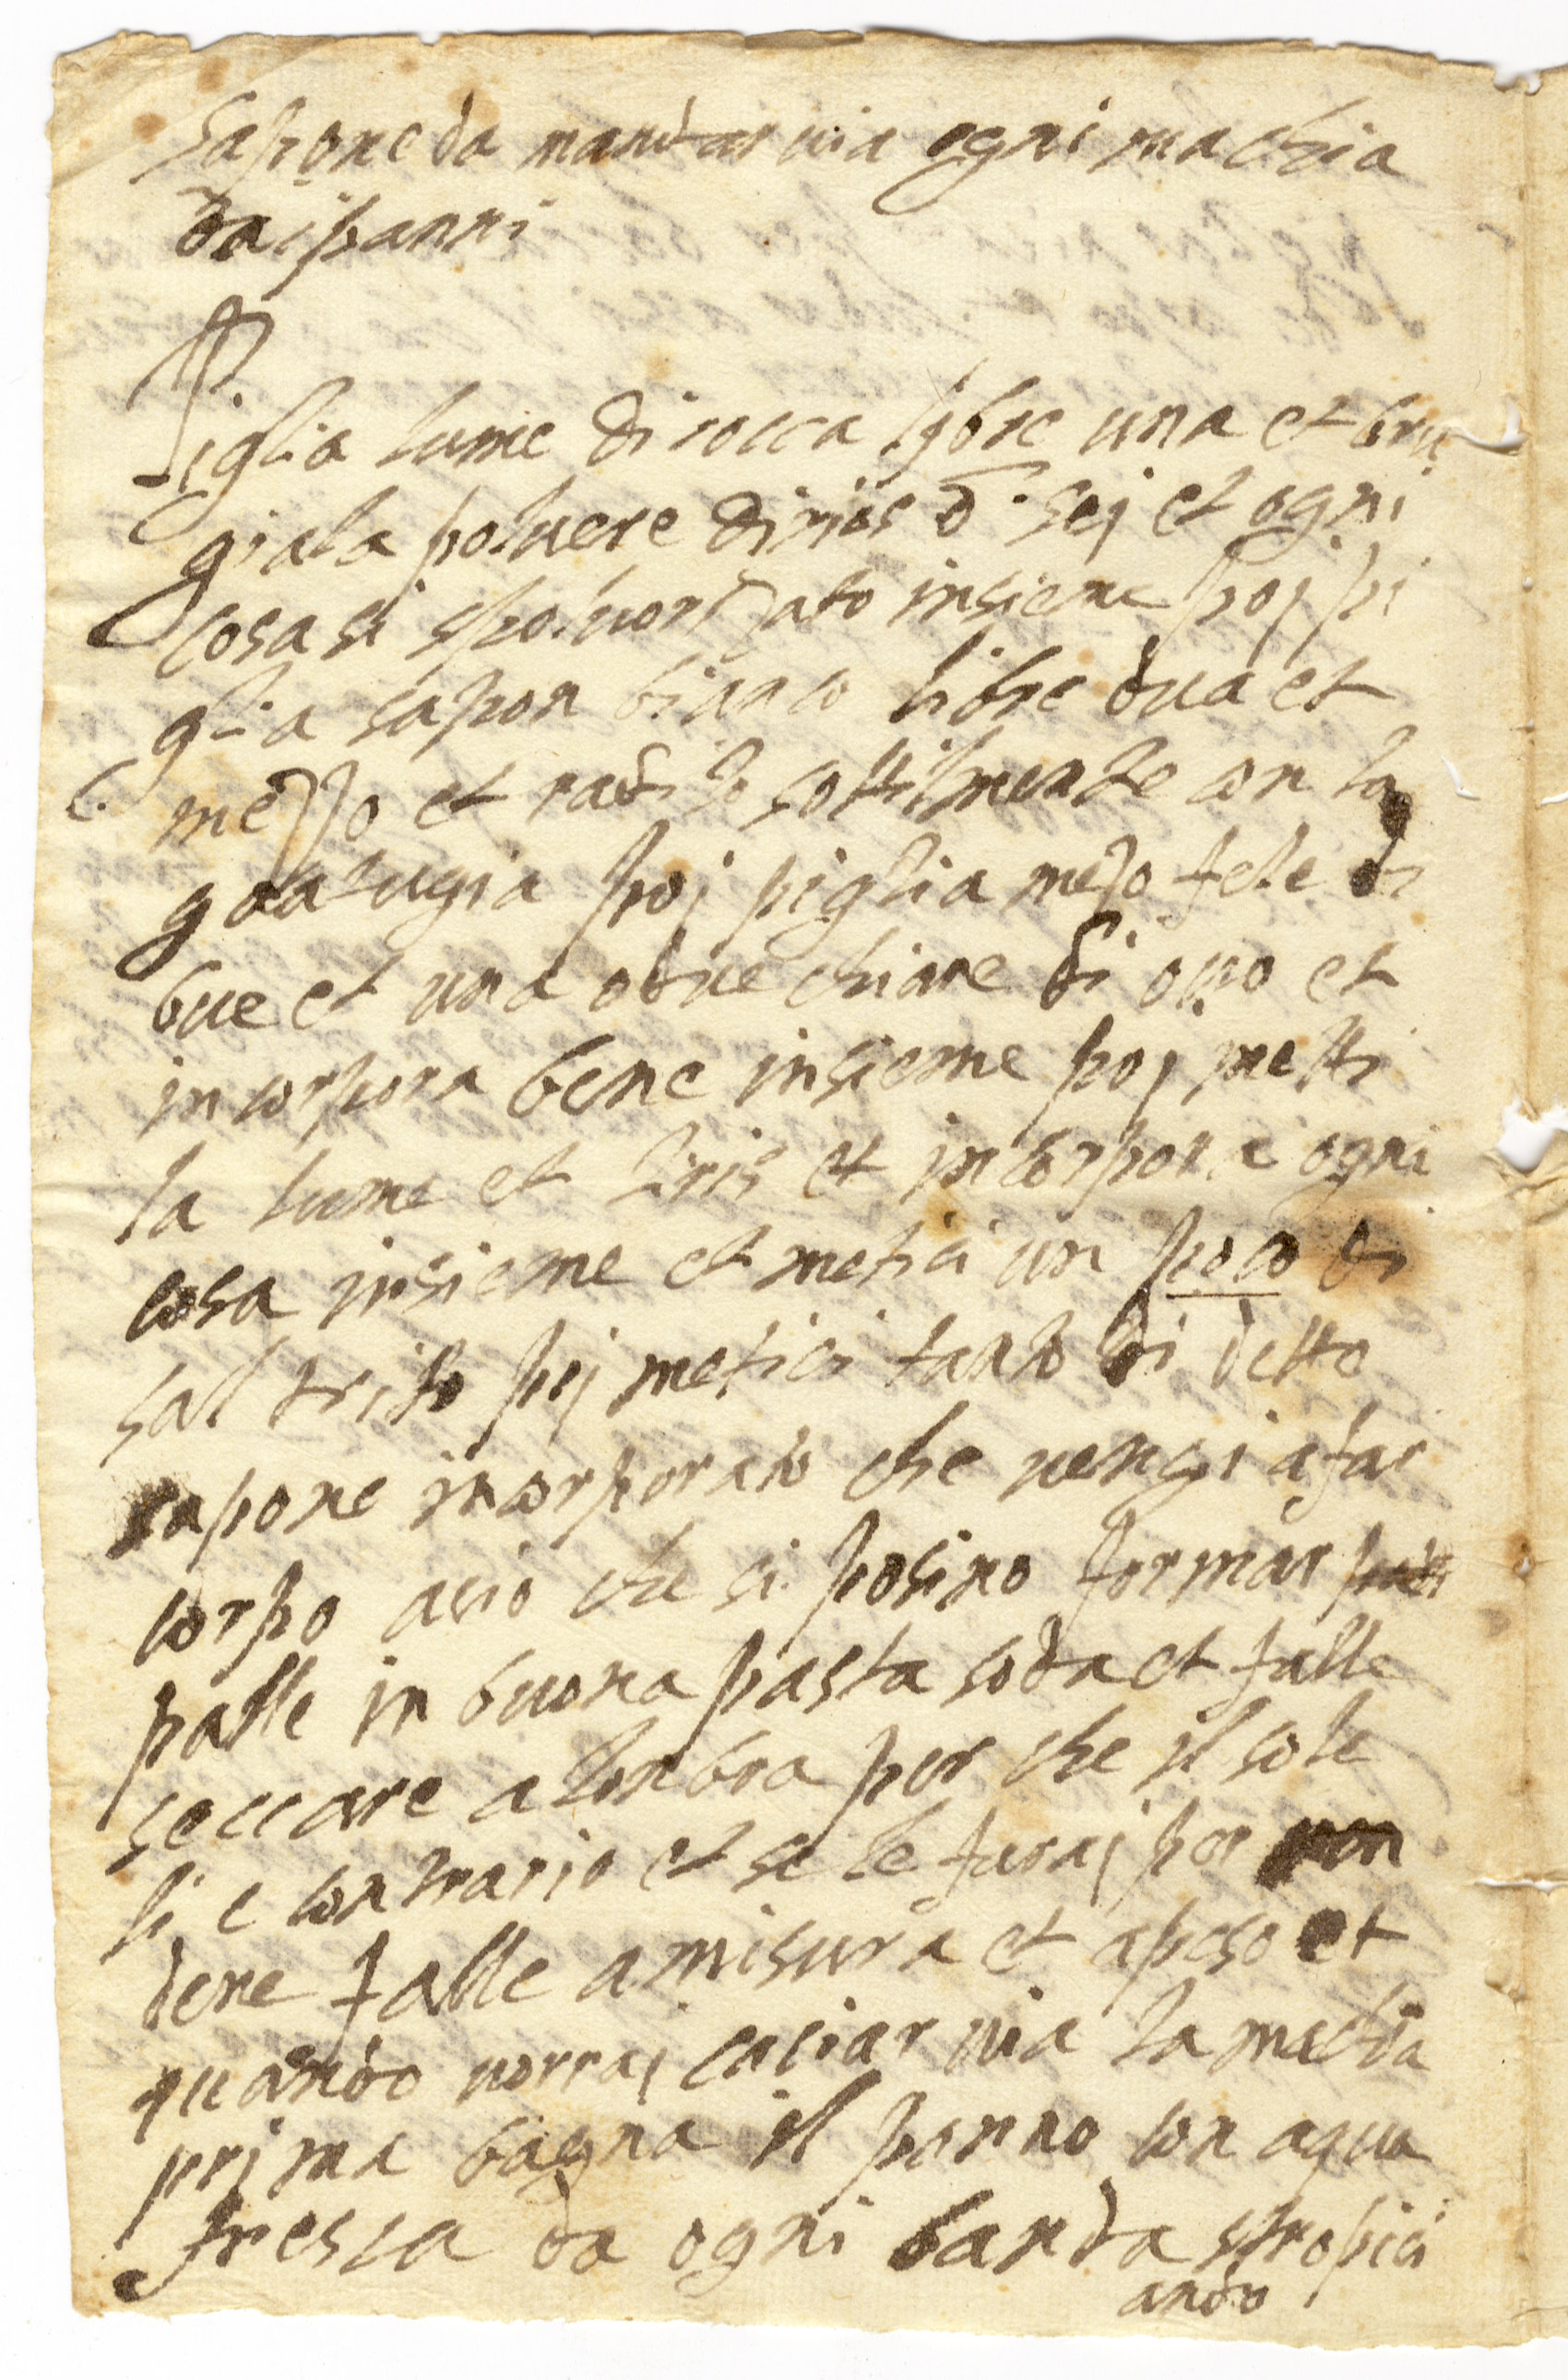 sapone da mandar uia ogni machia
da i panni
Piglia lume di rocca ljbre una et bru
giala poluere di irios ð. sej et ogni
cosa si spoluorizato insieme poj pi
glia sapon bianco libre dua et
mezzo et radilo sottilmente con la
gratugia poj piglia mezo fele di
bue et una o due chiare di ouo et
incorpora bene insieme poj metti
la lume et liris et incorpora ogni
cosa insieme et metici un poco di
sal trito poj metici tanto di detto
sapone incorporato che uengi a far
corpo acio che si posino formar
palle in buona pasta soda et falle
seccare a lonbra per che il sole
li e contrario et se le farai per uen
dere falle a misura et a peso et
quando uorrai caciar uia la machia
prima bagna il panno con aqua
fresca da ogni banda stropici
ando